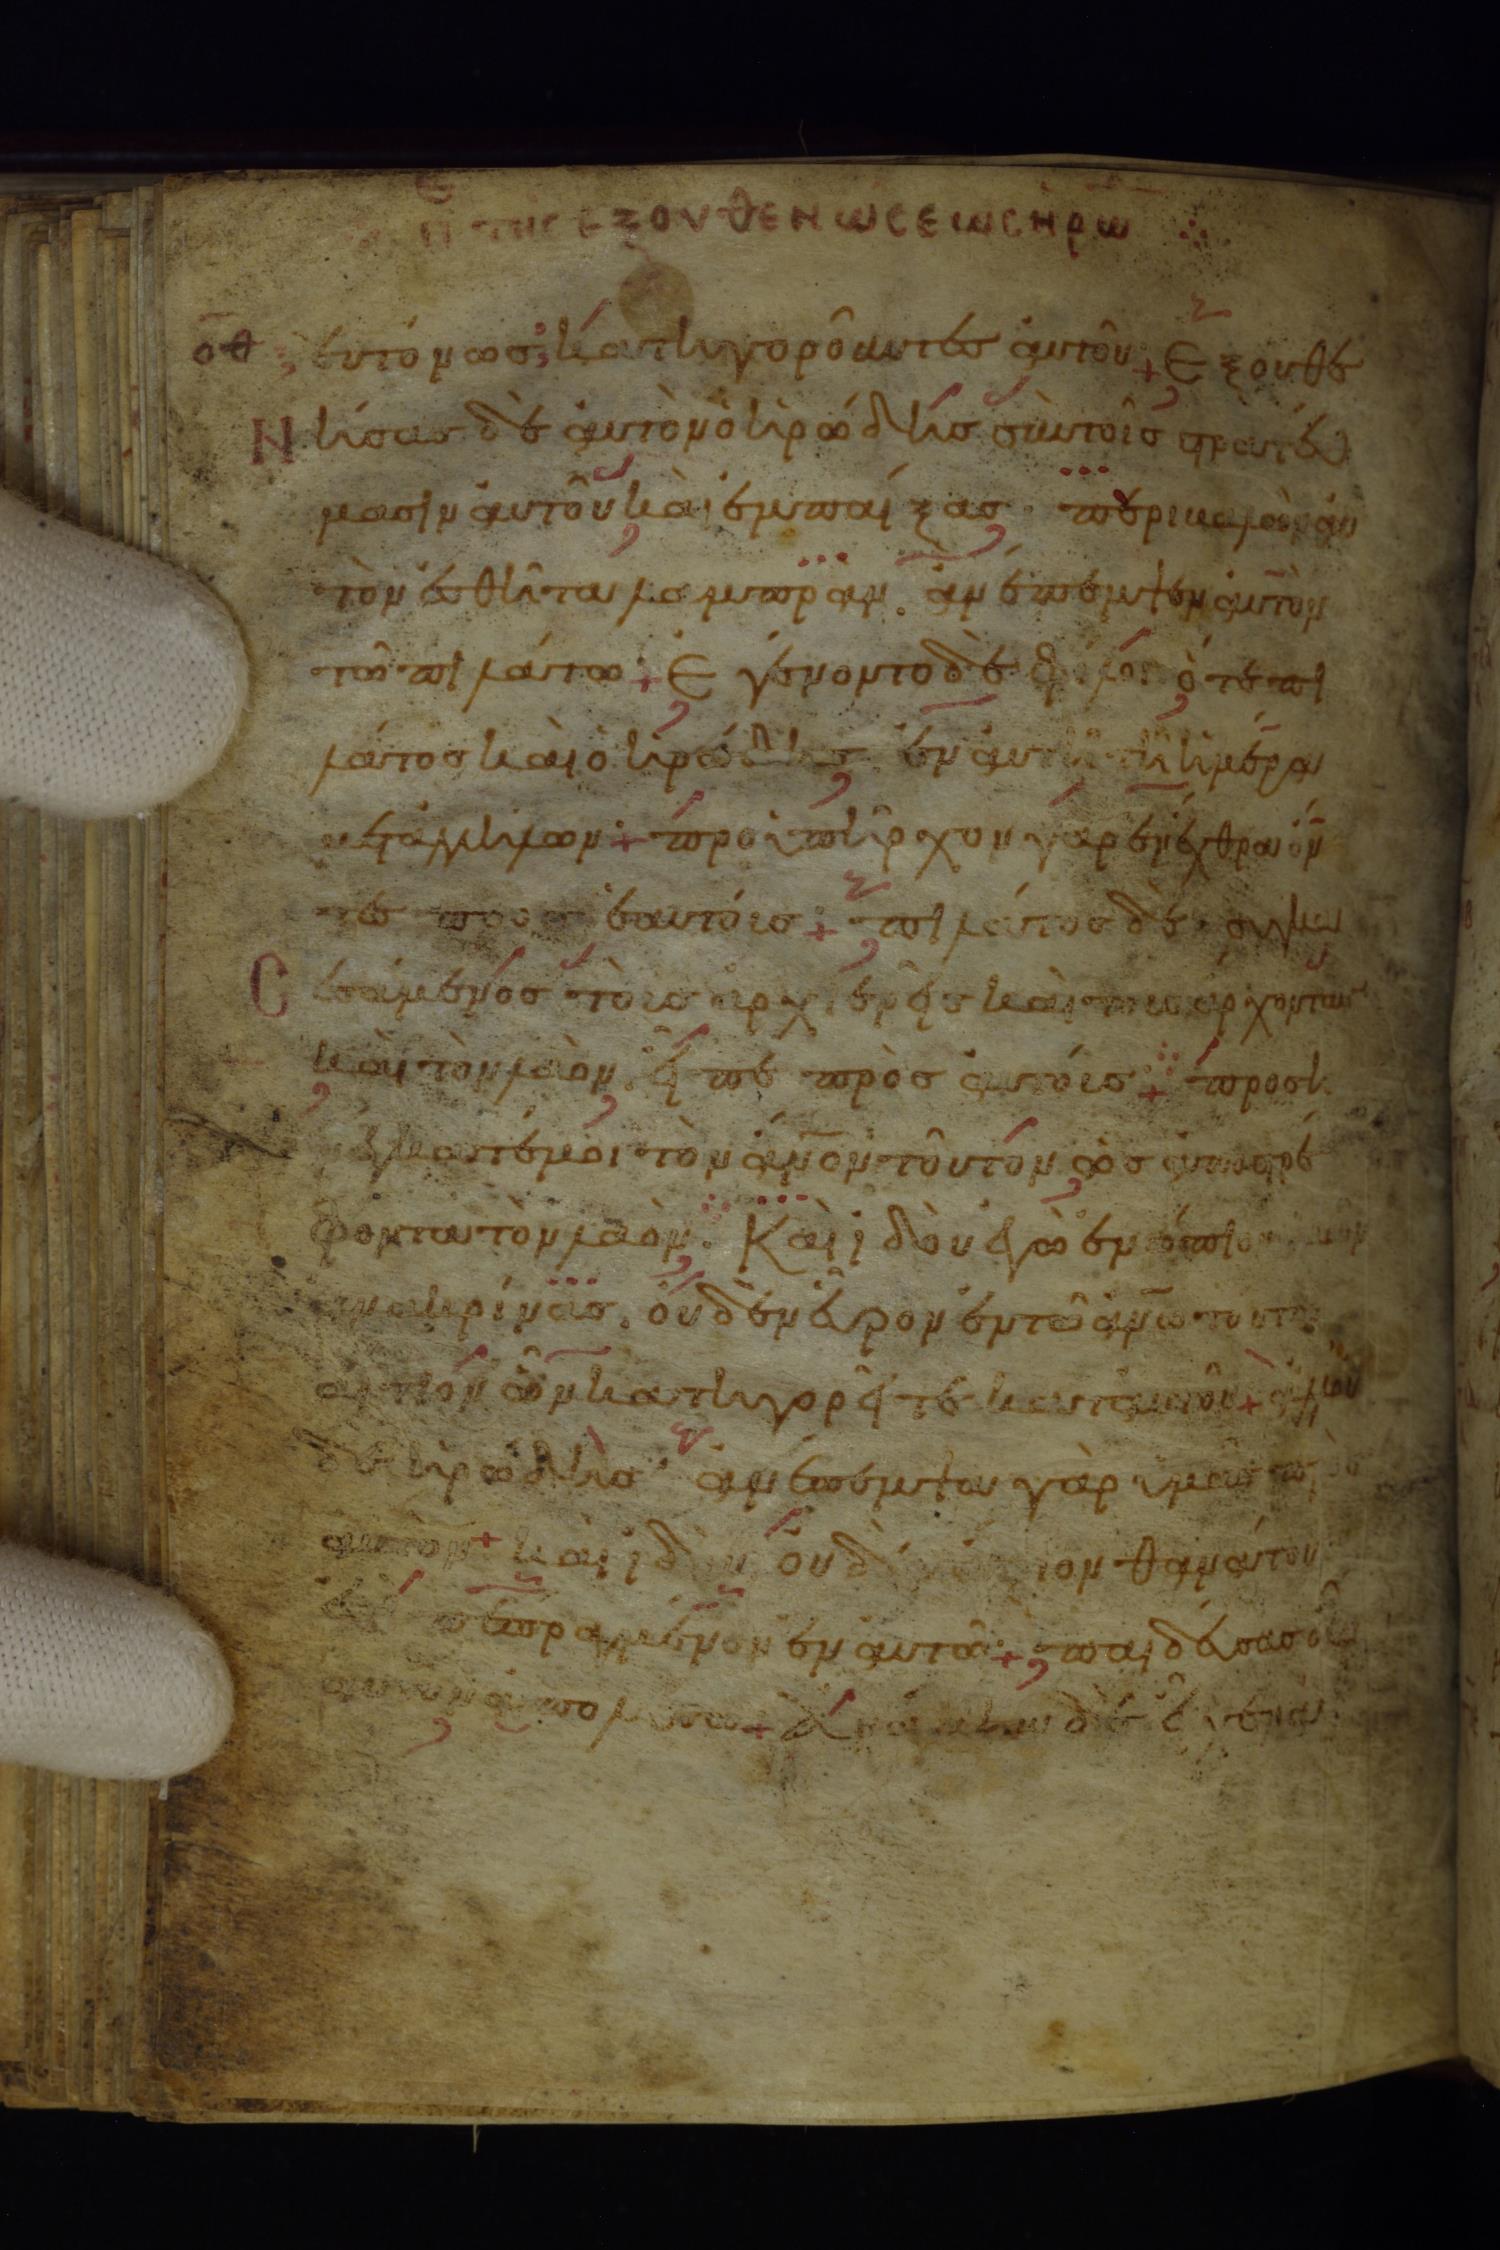 Π ΤΗC ΕΞΟΥΘΕΝΩCΕΩC ΗΡΩ
οθ εὐτόνωσ; κατηγοροῦντεσ ἀυτοῦ + Ἐξουθε
Νήσασ δὲ ἀυτὸν ὁ ἡρώδησ σὺν τοῖσ στρατεύ
μασιν ἀυτοῦ καὶ ἐμπαίξασ. περιβαλὼν ἀυ
τὸν ἐσθῆτα λαμπρὰν. ἀνέπεμψεν ἀυτὸν
τῶ πιλάτω + Ἐγένοντο δὲ φίλοι ὅ τε πι
λάτοσ καὶ ὁ ἡρώδησ ἐν ἀυτῆ τῆ ἡμέρα
μετἀλλήλων + προϋπῆρχον γὰρ ἐν ἔχθρα ὄν
τεσ ἑαυτόισ + πιλάτοσ δὲ συγκαλ
Cεσάμενοσ τοὺσ ἀρχιερεῖσ καὶ τοὺσ ἄρχοντασ
καὶ τὸν λαὸν. εἶπε πρὸσ ἀυτόυσ + προση
νέγκατέ μοι τὸν ἀν̅ον τοῦτον ὡσ ἀποστρέ
φοντα τὸν λαὸν. Καὶ ἰδοὺ ἐγὼ ἐνώπιον ὑμῶν
ἀνακρίνασ. ὀυδὲν εὗρον ἐν τῶ ἀν̅ω τούτω
αἴτιον ὧν κατηγορεῖτε κατ ἀυτοῦ + ἀλλ' ὀυ
δὲ ἡρώδησ ἀνέπεμψα γὰρ ὑμᾶσ πρὸσ
ἀυτὸν + καὶ ἰδοὺ ὀυδὲν ἄξιον θανάτου
ἐστὶ πεπραγμένον ἐν ἀυτῶ + παιδεύσασ οὖν
ἀυτὸν ἀπολύσω + Ἀνάγκην δὲ εἶχεν